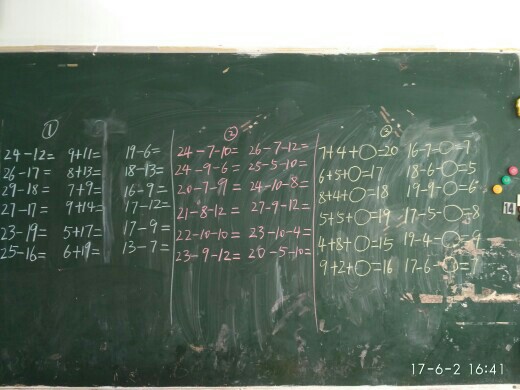 ① ② ③
24-12= 9+11= 19-6= 24-7-10= 26-7-12= 7+4+○=20 16-7-○=7
26-17= 8+13= 18-13= 24-9-6= 25-5-10= 6+5+○=17 18-6-○=5
29-18= 7+9= 16-9= 20-7-9= 24-10-8= 8+4+○=18 19-9-○=6
27-17= 9+14= 17-12= 21-8-12 27-9-12= 5+5+○=19 17-5-○=8
23-19= 5+17= 17-9= 22-10-10= 23-10-4= 4+8+○=15 19-4-○=9
25-16= 6+19= 13-7= 23-9-12= 20-5-10= 9+2+○=16 17-6-○=
14
17-6-2 16:41